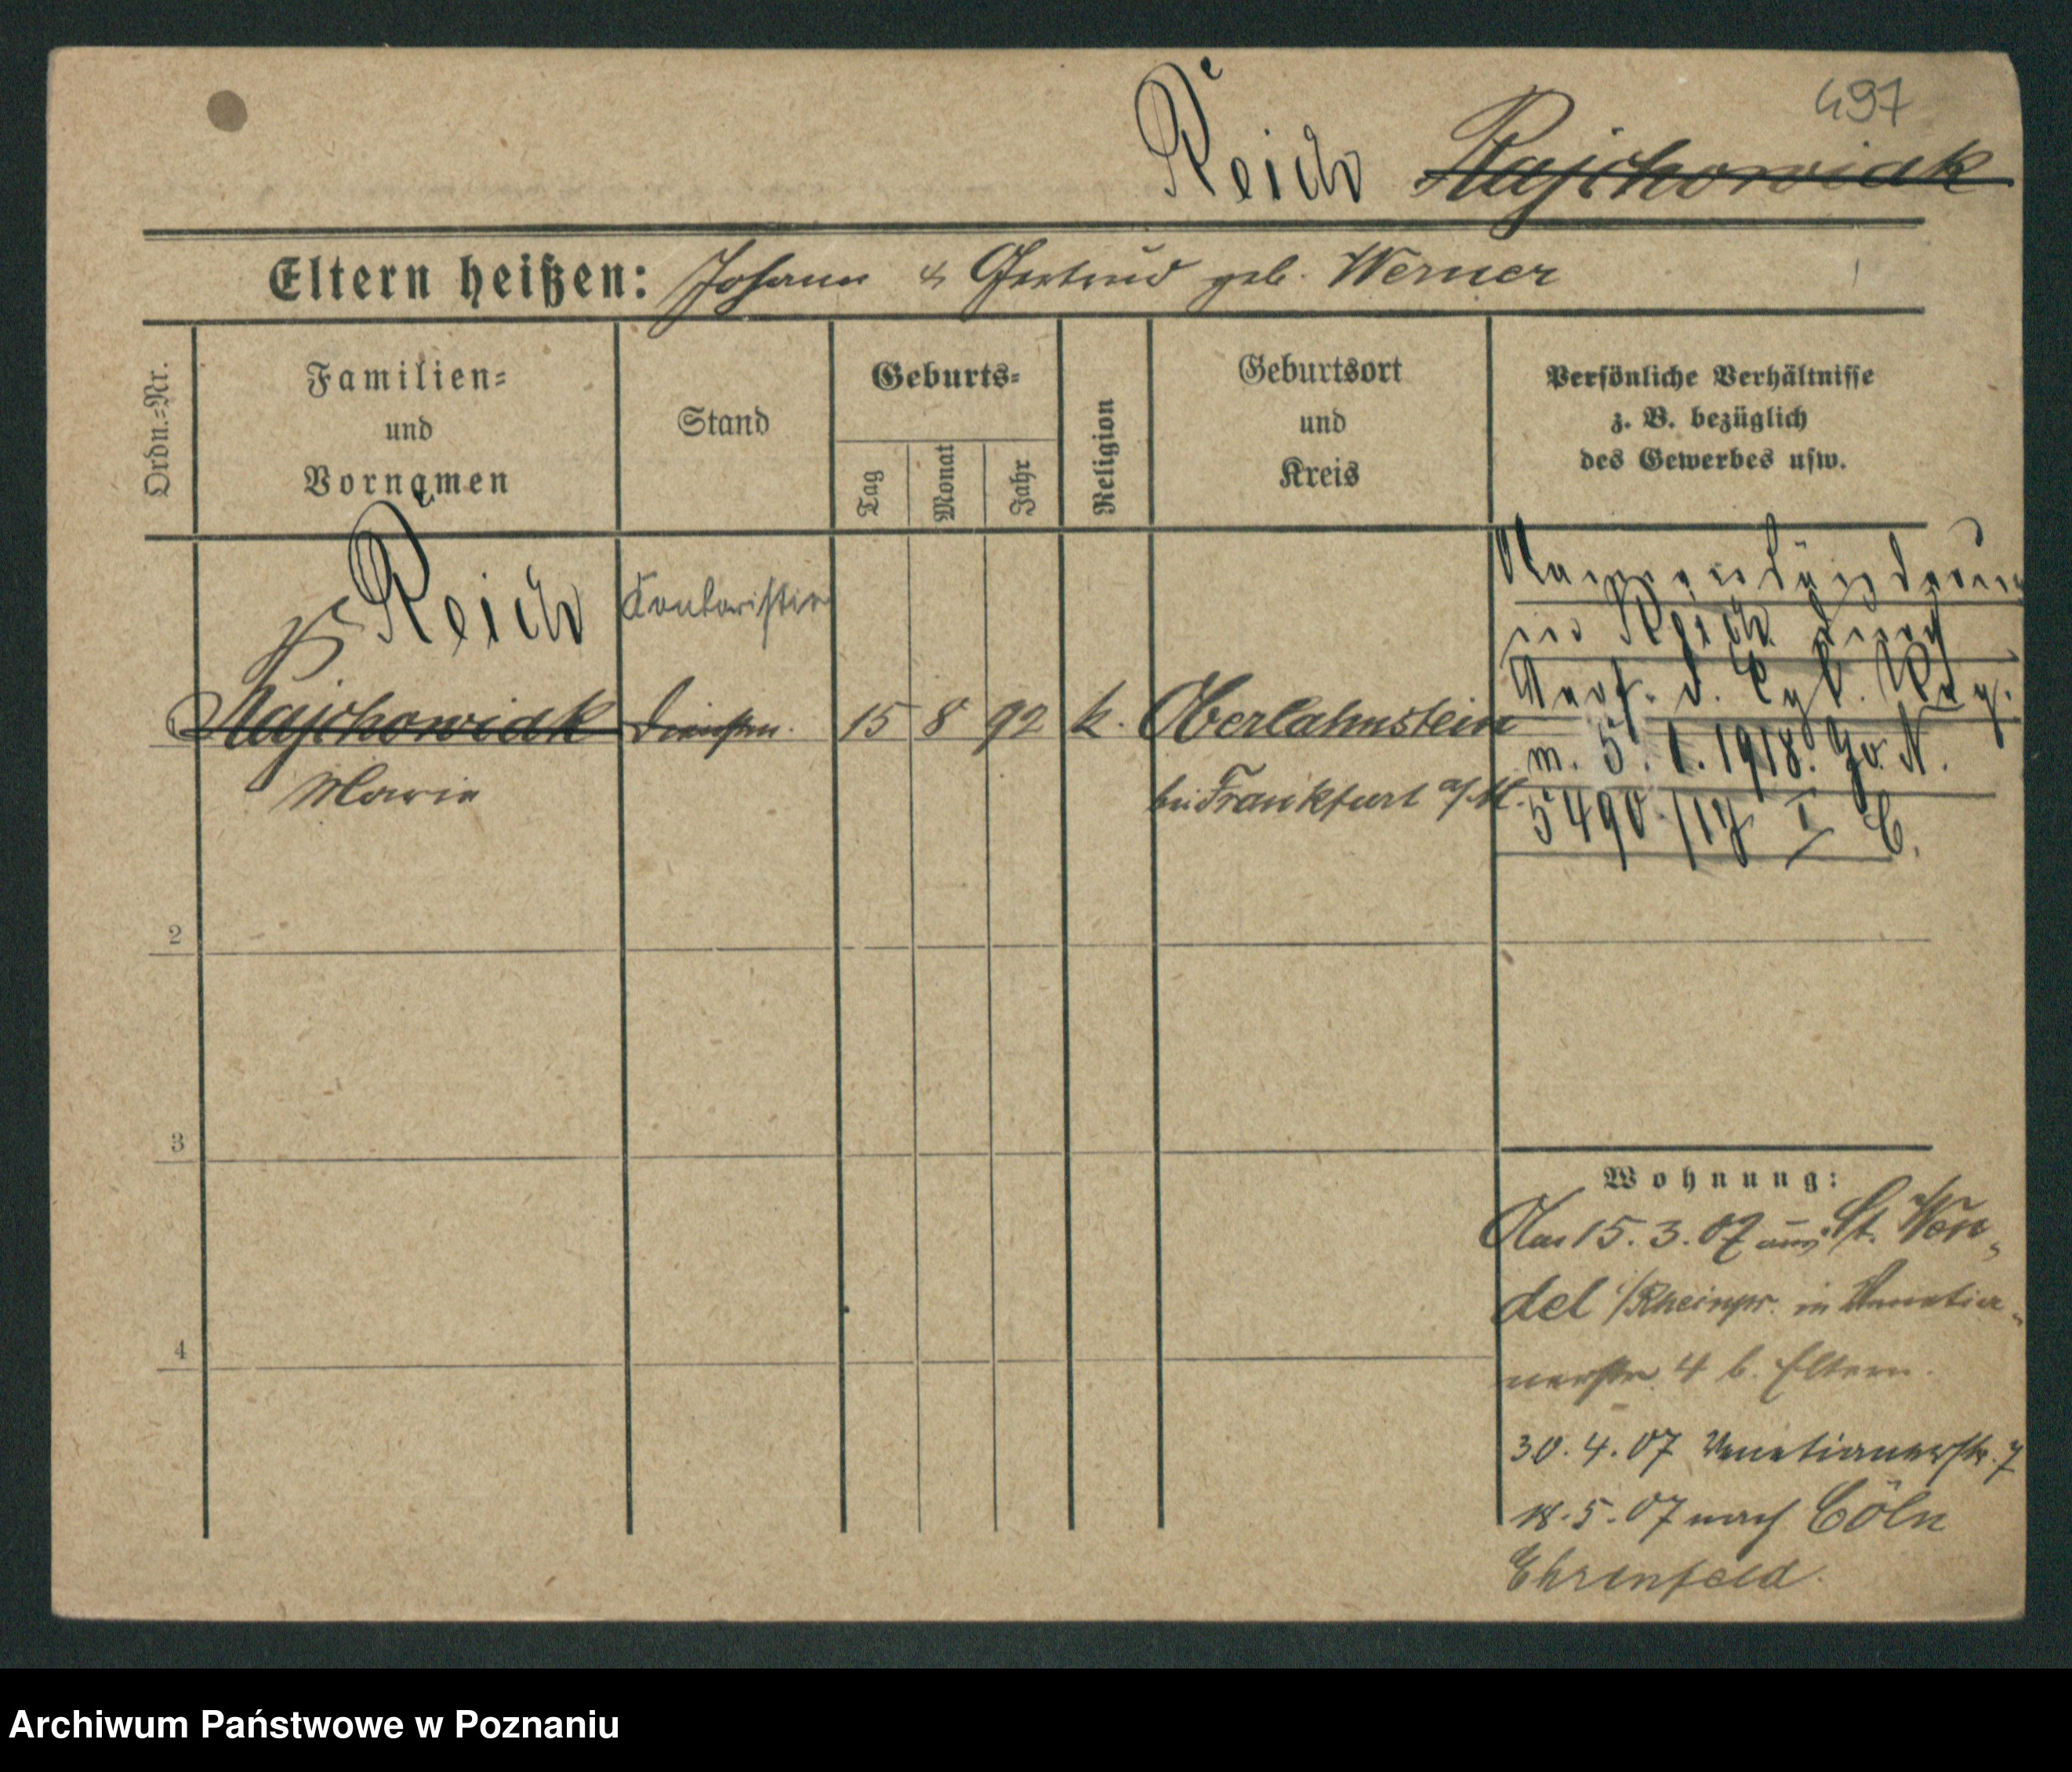 497
Reich Rajchowiak
Eltern heißen: Johann & Gertrud geb. Werner
Ordn.=Nr.
Familien=
und
Vornamen
Stand
Geburts=
Tag
Monat
Jahr
Religion
Geburtsort
und
Kreis
Persönliche Verhältnisse
z. B. bezüglich
des Gewerbes usw.
Reich Kontoristin
Rajchowiak Dienstm. 15 8 92 k. Oberlahnstein
Marie bei Frankfurt a/M.
Namensänderung
in Reich durch
Verf. d. Kgl. Reg.
v. 5. 1. 1918. J. N.
5490./17 I C.
2
3
4
Wohnung:
Am 15. 3. 07 aus St. Wen-
del /Rheinpr. in Venetia-
nerstr. 4 b. Eltern.
30. 4. 07 Venetianerstr. 7
18. 5. 07 nach Cöln
Ehrenfeld.
Archiwum Państwowe w Poznaniu